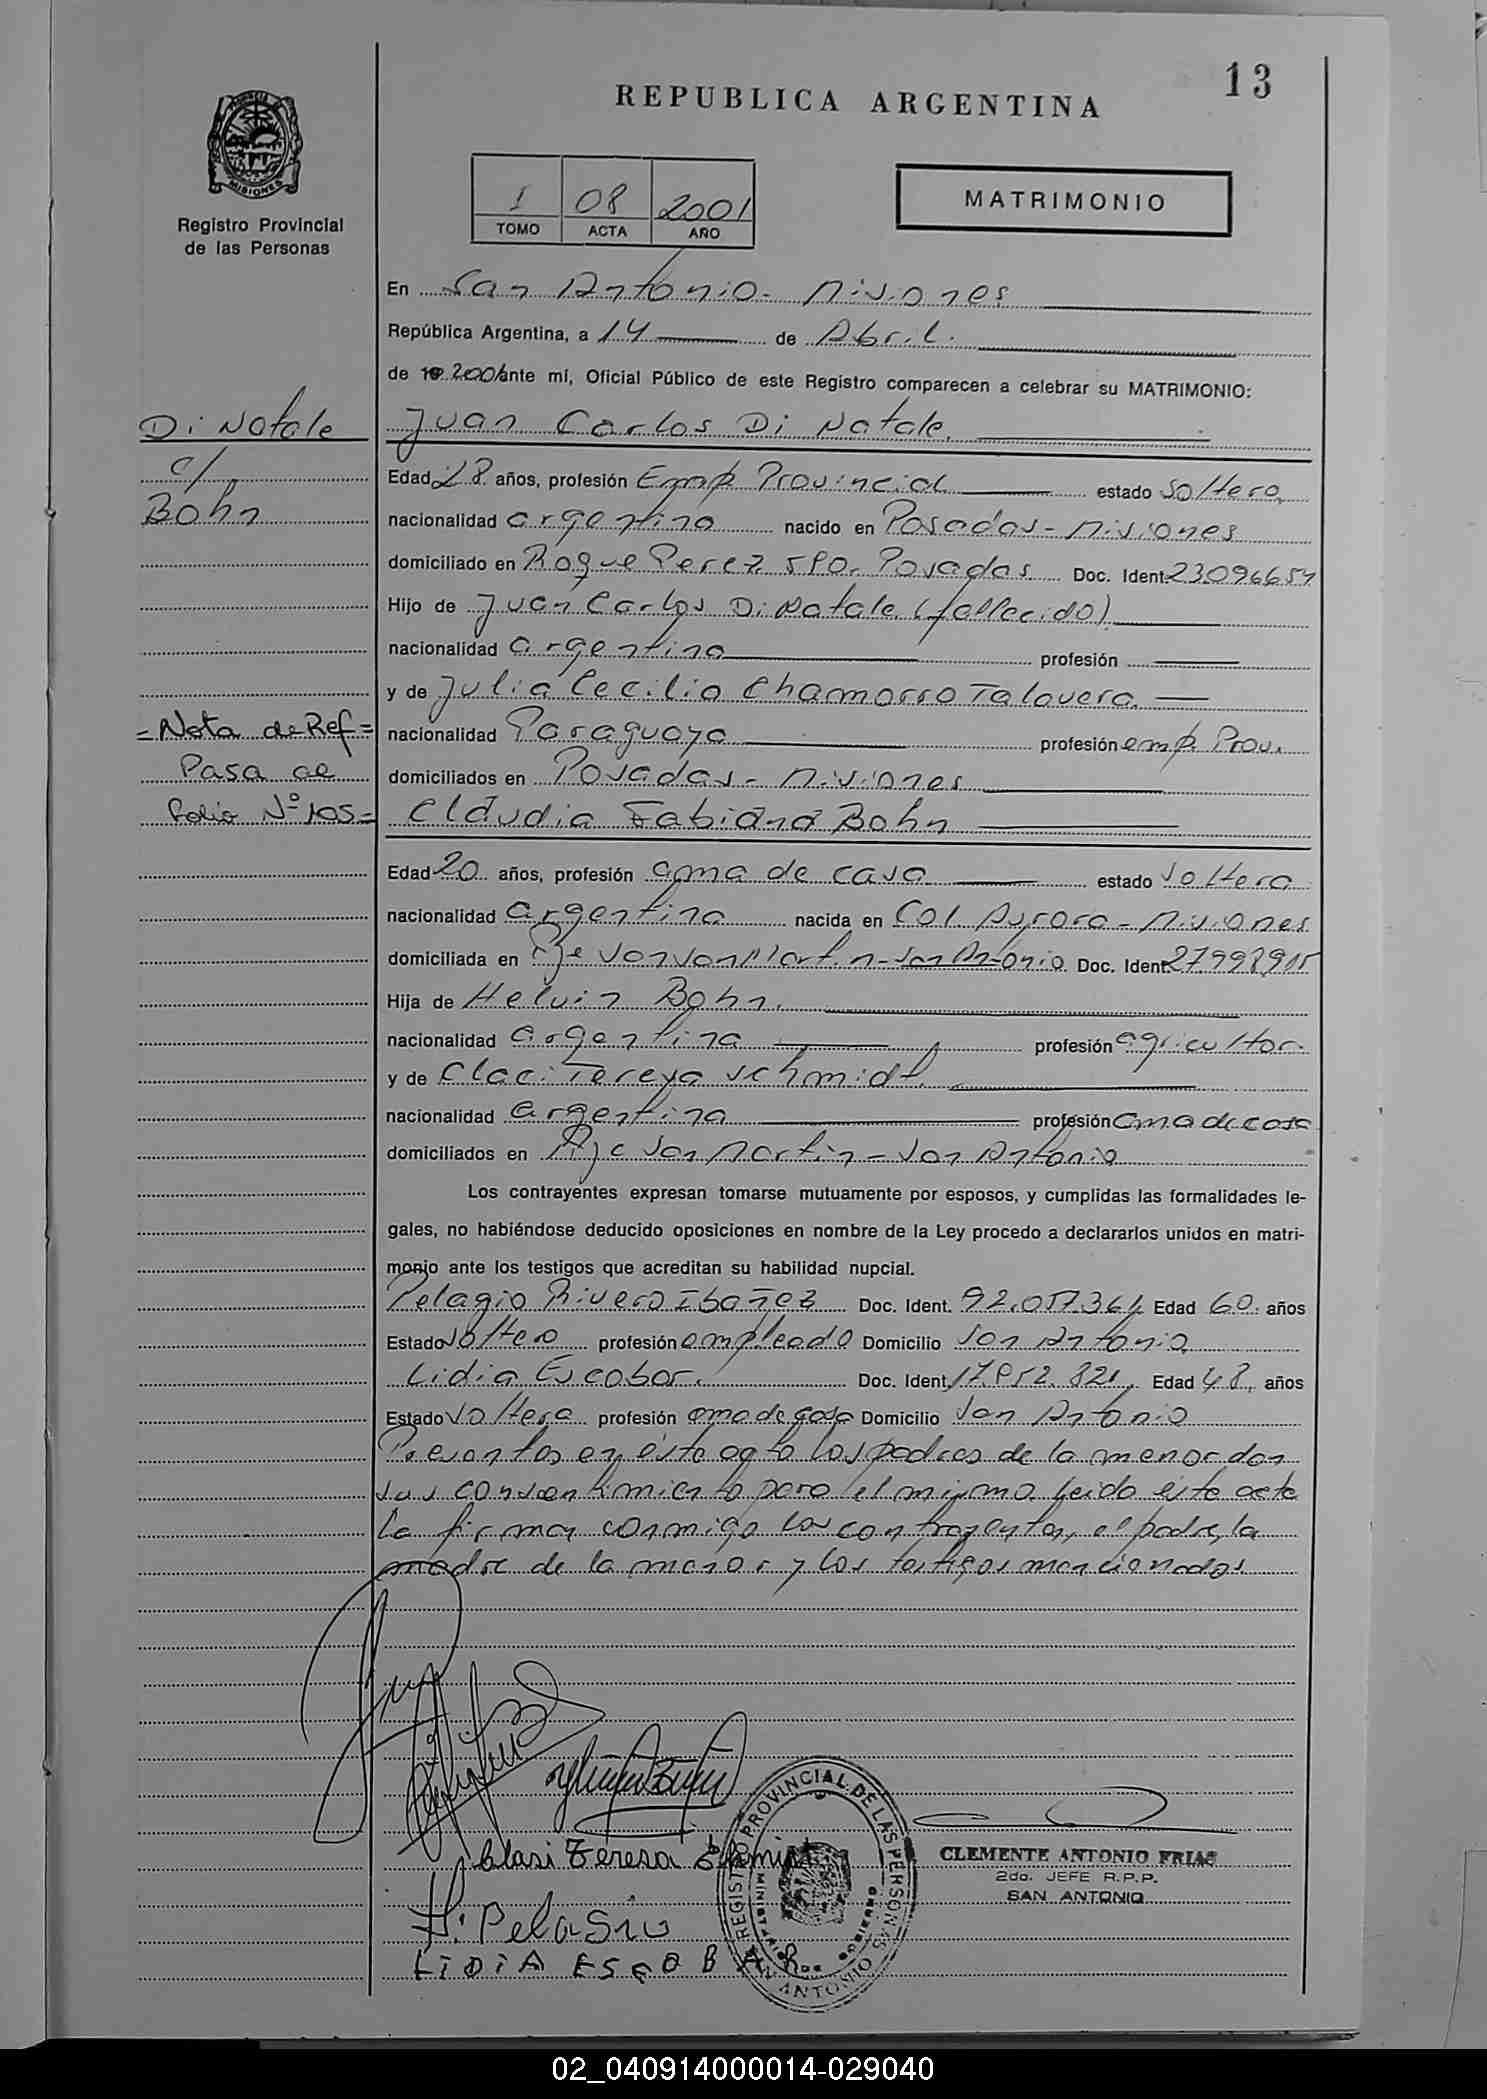 13
REPUBLICA ARGENTINA
PROVINCIA DE MISIONES
Registro Provincial
de las Personas
1 08 2001
TOMO ACTA AÑO
MATRIMONIO
En San Antonio - Misiones
República Argentina, a 14 de Abril.
de 19 2001 ante mí, Oficial Público de este Registro comparecen a celebrar su MATRIMONIO:
Di Natale
c/
Bohn
Juan Carlos Di Natale.
Edad 28 años, profesión Emp. Provincial estado soltero,
nacionalidad argentina nacido en Posadas - Misiones
domiciliado en Roque Perez 580. Posadas. Doc. Ident. 23096654
Hijo de Juan Carlos Di Natale (fallecido)
nacionalidad argentina profesión
y de Julia Cecilia Chamorro Talavera.
= Nota de Ref =
Pasa al
folio Nº 105 =
nacionalidad Paraguaya profesión emp. Prov.
domiciliados en Posadas - Misiones
Claudia Fabiana Bohn
Edad 20 años, profesión ama de casa estado soltera
nacionalidad argentina nacida en Col. Aurora - Misiones
domiciliada en Pje San Martin - San Antonio. Doc. Ident. 27998915
Hija de Helvin Bohn.
nacionalidad argentina profesión agricultor.
y de Claci Teresa Schmidt.
nacionalidad argentina profesión ama de casa
domiciliados en Pje San Martin - San Antonio
Los contrayentes expresan tomarse mutuamente por esposos, y cumplidas las formalidades le-
gales, no habiéndose deducido oposiciones en nombre de la Ley procedo a declararlos unidos en matri-
monio ante los testigos que acreditan su habilidad nupcial.
Pelagio Rivero Ibañez Doc. Ident. Edad 60 años
Estado soltero profesión empleado Domicilio San Antonio
Lidia Escobar. Doc. Ident. 17.852.821, Edad 48, años
Estado soltera profesión ama de casa Domicilio San Antonio
Presentes en éste acto los padres de la menor dan
sus consentimiento para el mismo. Leido éste acta
la firman conmigo los contrayentes, el padre, la
madre de la menor y los testigos mencionados
Clasi Teresa
H. Pelasio
LIDIA ESCOBAR
REGISTRO PROVINCIAL DE LAS PERSONAS
SAN ANTONIO
CLEMENTE ANTONIO FRIAS
2do. JEFE R.P.P.
SAN ANTONIO
02_040914000014-029040